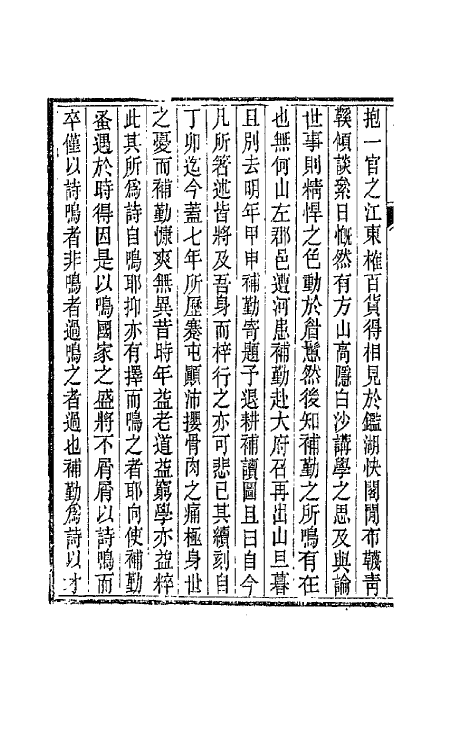 抱一官之江東榷百貨得相見於鑑湖快閣閒布韤青
鞵傾談絫日慨然有方山高隱白沙講學之思及與論
世事則精悍之色動於眉鬢然後知補勤之所鳴有在
也無何山左郡邑遭河患補勤赴大府召再出山旦暮
且別去明年甲申補勤寄題予退耕補讀圖且曰自今
凡所箸述皆將及吾身而梓行之亦可悲已其續刻自
丁卯迄今蓋七年所歷蹇屯顚沛攖骨肉之痛極身世
之憂而補勤慷爽無異昔時年益老道益窮學亦益粹
此其所爲詩自鳴耶抑亦有擇而鳴之者耶向使補勤
蚤遇於時得因是以鳴國家之盛將不屑屑以詩鳴而
卒僅以詩鳴者非鳴者過鳴之者過也補勤爲詩以才